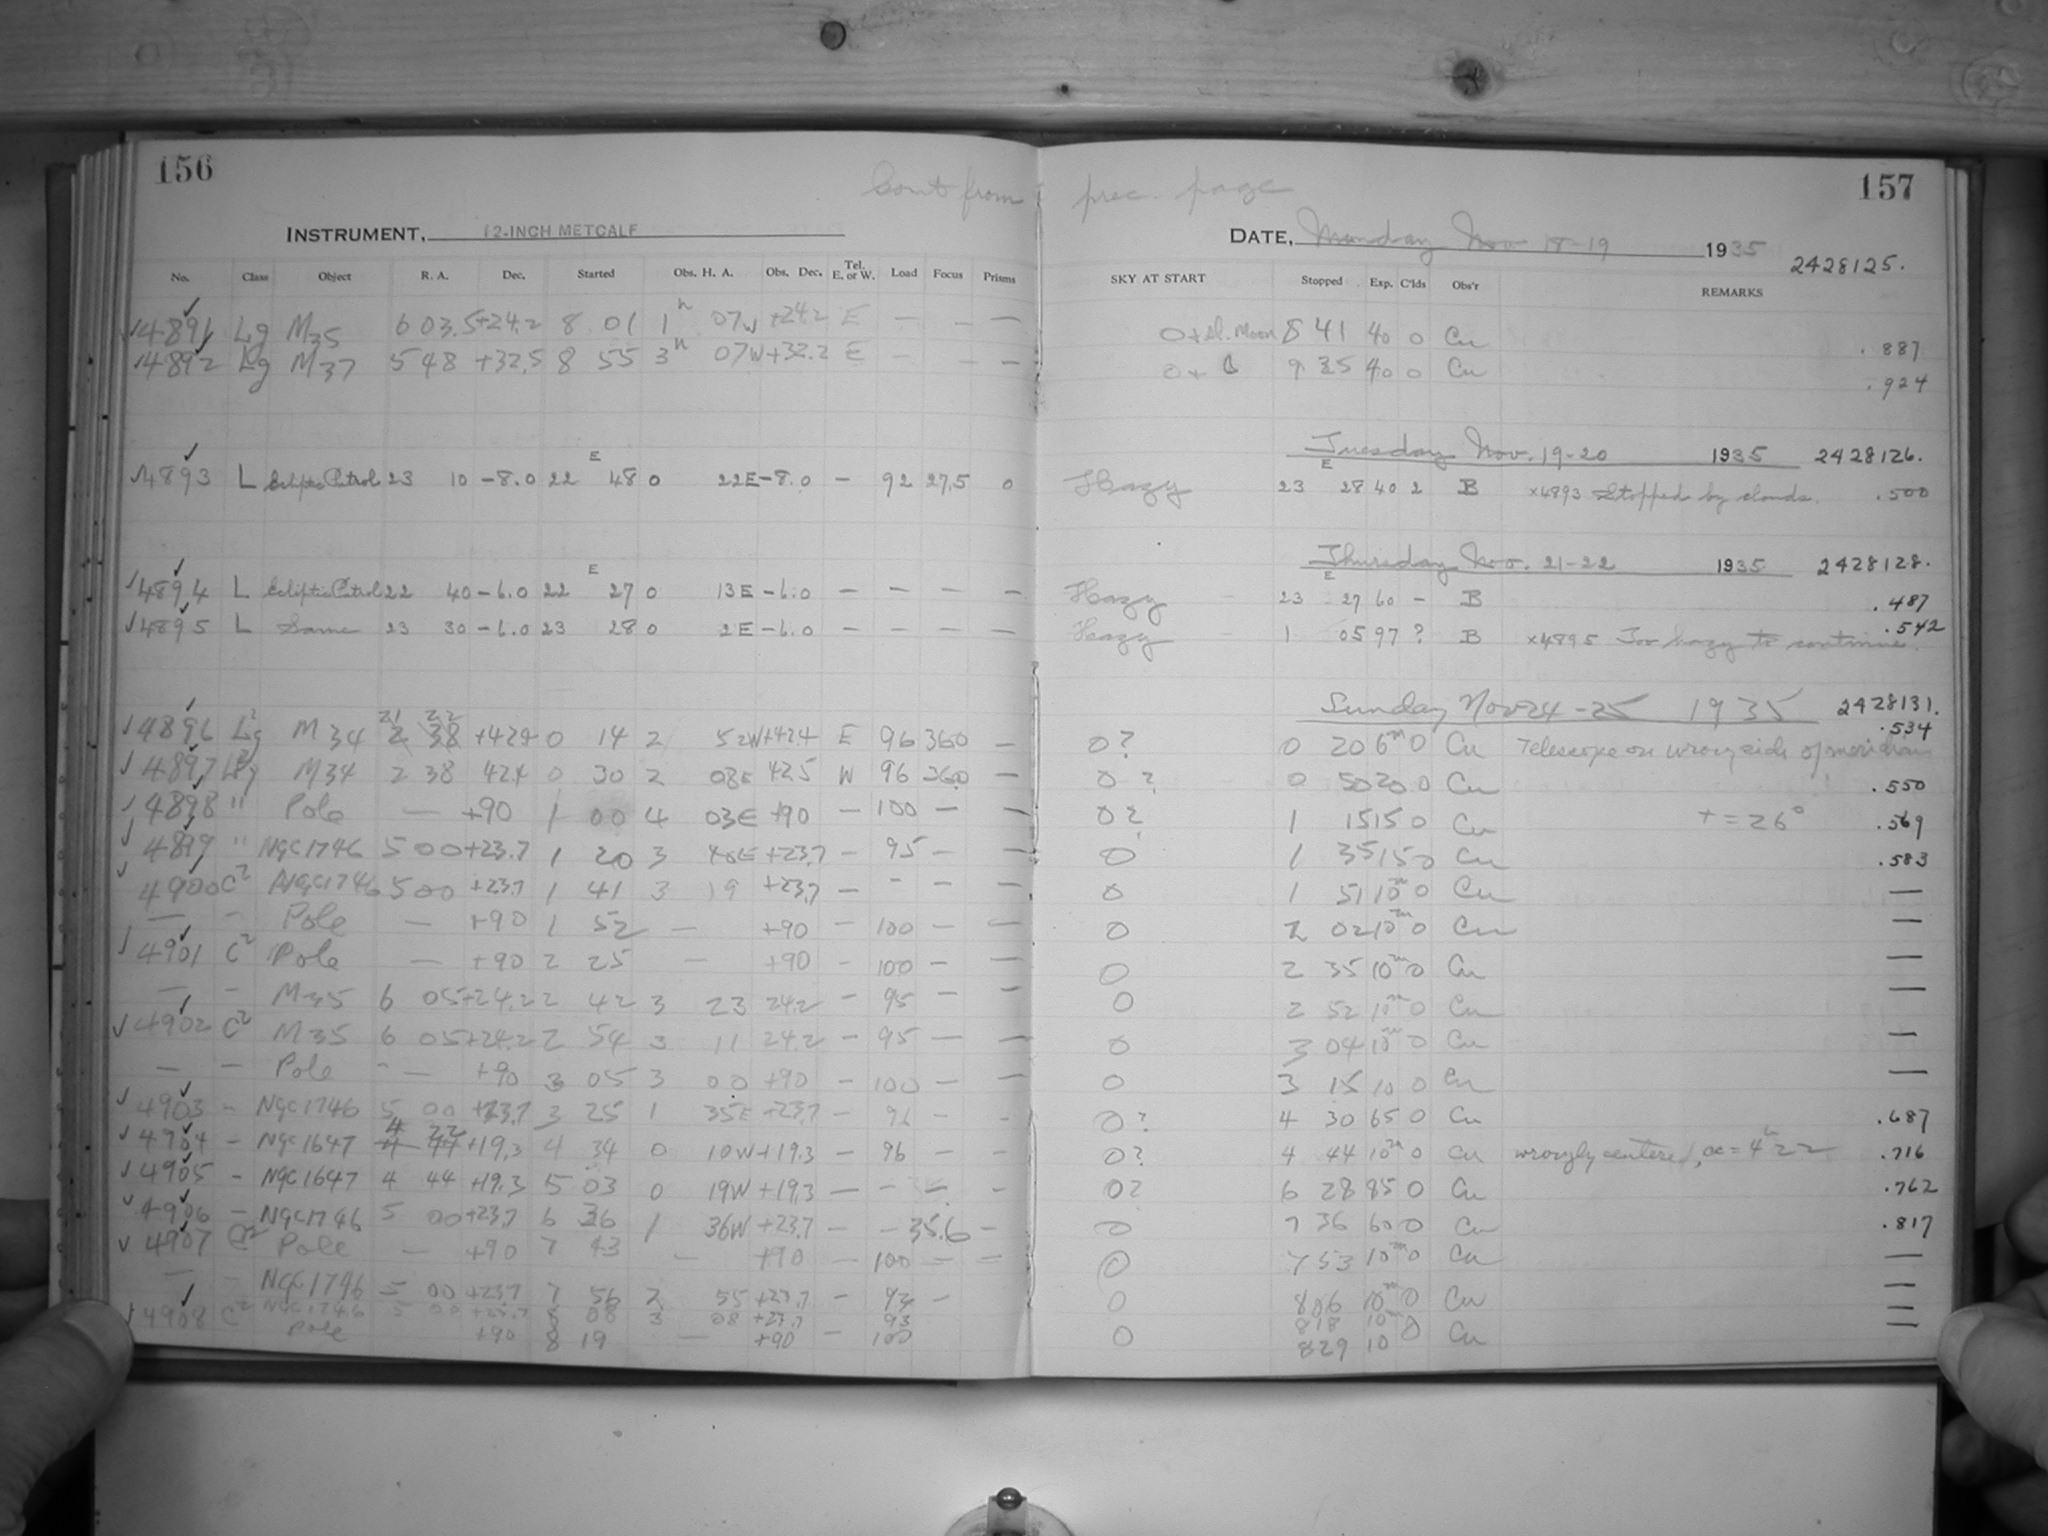 156
157
Cont from prec. page
INSTRUMENT, 12-INCH METCALF
DATE, Monday Nov 18-19 1935 2428125.
No. Class Object R. A. Dec. Started Obs. H. A. Obs. Dec. Tel. E. or W. Load Focus Prisms SKY AT START Stopped Exp. C'lds Obs'r REMARKS
4891 Lg M35 6 03.5 +24.2 8 01 1h 07W +24.2 E — — — 8 41 40 0 Cu .887
4892 Lg M37 5 48 +32.5 8 55 3h 07W +32.2 E — 9 35 40 0 Cu .924
Tuesday Nov. 19-20 1935 2428126.
4893 L Ecliptic Patrol 23 10 -8.0 22 48 0 22E -8.0 — 92 27.5 0 Hazy 23 28 40 2 B ×4893 Stopped by clouds. .500
Thursday Nov. 21-22 1935 2428128.
4894 L Ecliptic Patrol 22 40 -6.0 22 27 0 13E -6.0 — — — — Hazy 23 27 60 — B .487
4895 L Same 23 30 -6.0 23 28 0 2E -6.0 — — — — Hazy 1 05 97 ? B ×4895 Too hazy to continue. .542
Sunday Nov 24-25 1935 2428131.
4896 Lg2 M34 21 22 2 38 +42.4 0 14 2 52W +42.4 E 96 360 — 0? 0 20 6m 0 Cu Telescope on wrong side of meridian .534
4897 M34 2 38 42.4 0 30 2 08E 42.5 W 96 360 — 0 ? 0 50 20 0 Cu .550
4898 " Pole — +90 1 00 4 03E +90 — 100 — — 0? 1 15 15 0 Cu + = 26° .569
4899 " NGC1746 5 00 +23.7 1 20 3 40E +23.7 — 95 — 0 1 35 15 0 Cu .583
4900 C2 NGC1746 5 00 +23.7 1 41 3 19 +23.7 — — — — 0 1 51 10m 0 Cu —
— — Pole — +90 1 52 — +90 — 100 — — 0 2 02 10m 0 Cu —
4901 C2 Pole — +90 2 25 — +90 — 100 — — 0 2 35 10m 0 Cu —
— — M35 6 05 +24.2 2 42 3 23 24.2 — 95 — — 0 2 52 10m 0 Cu —
4902 C2 M35 6 05 +24.2 2 54 3 11 24.2 — 95 — — 0 3 04 10m 0 Cu —
— — Pole — — +90 3 05 3 00 +90 — 100 — — 0 3 15 10 0 Cu —
4903 — NGC1746 5 00 +23.7 3 25 1 35E +23.7 — 96 — — 0? 4 30 65 0 Cu .687
4904 — NGC1647 4 22 4 44 +19.3 4 34 0 10W +19.3 — 96 — — 0? 4 44 10m 0 Cu wrongly centered, α = 4h 22 .716
4905 — NGC1647 4 44 +19.3 5 03 0 19W +19.3 — — — — 0? 6 28 85 0 Cu .762
4906 — NGC1746 5 00 +23.7 6 36 1 36W +23.7 — — 35.6 — 0 7 36 60 0 Cu .817
4907 C2 Pole — +90 7 43 — +90 — 100 — — 0 7 53 10m 0 Cu —
— — NGC1746 5 00 +23.7 7 56 2 55 +23.7 — — 0 8 06 10m 0 Cu —
4908 C2 NGC1746 5 00 +23.7 8 08 3 08 +23.7 93 8 18 10m —
Pole +90 8 19 — +90 — 100 0 8 29 10 0 Cu —